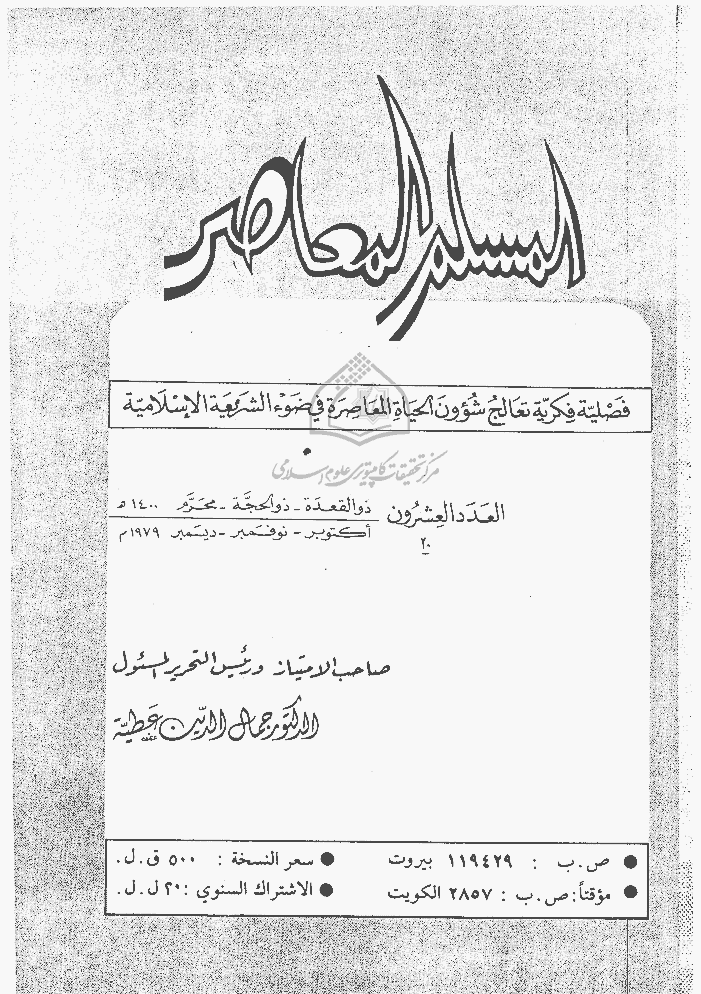 المسلم المعاصر
فَصْليّة فِكريّة تعَالجُ شُؤونَ الحيَاةِ المعَاصِرَة في ضَوْء الشريعَة الإسْلاميّة
مركز تحقيقات كامپيوترى علوم اسلامى
العَدَد العِشرُون
٢٠
ذوالقعدَة - ذوالحجَّة - محَرَّم ١٤٠٠ هـ
أكتوبر - نوفمبر - ديسمبر ١٩٧٩ م
صاحب الامتياز ورئيس التحرير المسئول
الدكتور جمال الدّين عَطيّة
● ص.ب : ١١٩٤٢٩ بيروت
● مؤقتاً: ص.ب : ٢٨٥٧ الكويت
● سعر النسخة : ٥٠٠ ق.ل.
● الاشتراك السنوي : ٢٠ ل.ل.